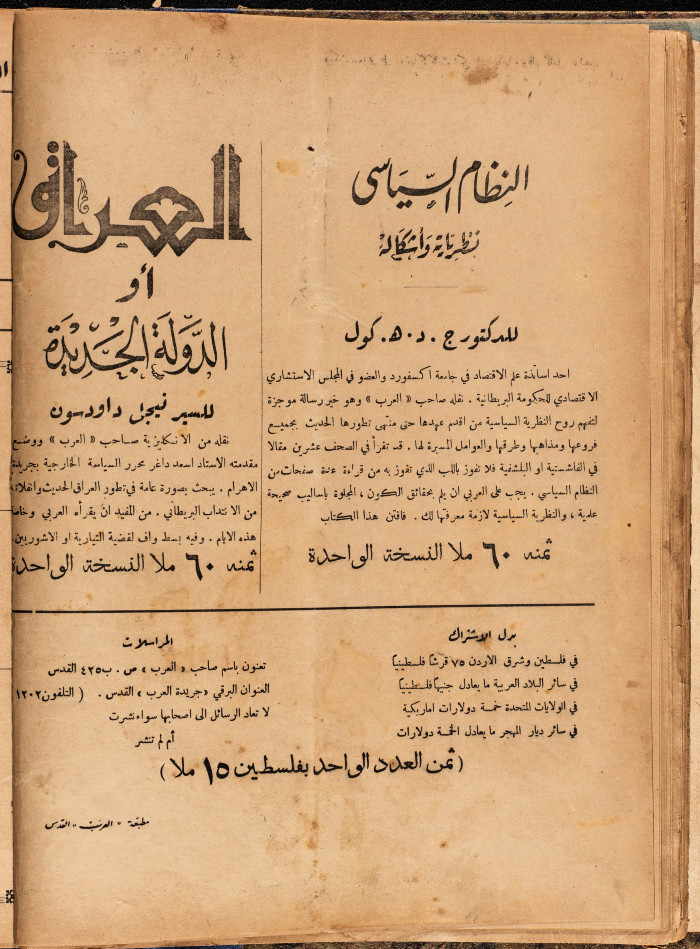 النظام السياسى
نظرياته وأشكاله
للدكتور ج . د . ه . كول
احد اساتذة علم الاقتصاد في جامعة اكسفورد والعضو في المجلس الاستشاري
الاقتصادي للحكومة البريطانية . نقله صاحب « العرب » وهو خير رسالة موجزة
لتفهم روح النظرية السياسية من اقدم عهدها حتى منتهى تطورها الحديث بجميع
فروعها ومذاهبها وطرقها والعوامل المسيرة لها . قد تقرأ في الصحف عشرين مقالا
في الفاشستية او البلشفية فلا تفوز باللب الذي تفوز به من قراءة عدة صفحات من
النظام السياسي . يجب على العربي ان يلم بحقائق الكون ، المجلوة باساليب صحيحة
علمية ، والنظرية السياسية لازمة معرفتها لك . فاقتن هذا الكتاب
ثمنه ٦٠ ملا النسخة الواحدة
العراق
أو
الدولة الجديدة
للسير نيجل داودسون
نقله من الانكليزية صاحب « العرب » ووضع
مقدمته الاستاذ اسعد داغر محرر السياسة الخارجية بجريدة
الاهرام . يبحث بصورة عامة في تطور العراق الحديث وانفلاته
من الانتداب البريطاني . من المفيد ان يقرأه العربي وخاصة
هذه الايام . وفيه بسط واف لقضية التيارية او الاشوريين .
ثمنه ٦٠ ملا النسخة الواحدة
بدل الاشتراك
في فلسطين وشرق الاردن ٧٥ قرشا فلسطينيا
في سائر البلاد العربية ما يعادل جنيها فلسطينيا
في الولايات المتحدة خمسة دولارات اماريكية
في سائر ديار المهجر ما يعادل الخمسة دولارات
المراسلات
تعنون باسم صاحب « العرب » ص . ب ٤٢٥ القدس
العنوان البرقي « جريدة العرب » القدس . ( التلفون ١٢٠٢
لا تعاد الرسائل الى اصحابها سواء نشرت
أم لم تنشر
( ثمن العدد الواحد بفلسطين ١٥ ملا )
مطبعة « العرب » القدس